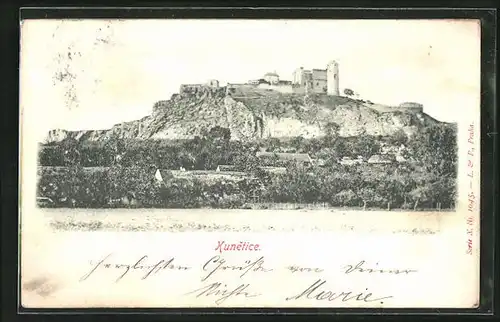 Kunětice.
herzlichsten Grüße von Deiner
Nichte Marie
Serie X. Nr. — L. & P., Prag.